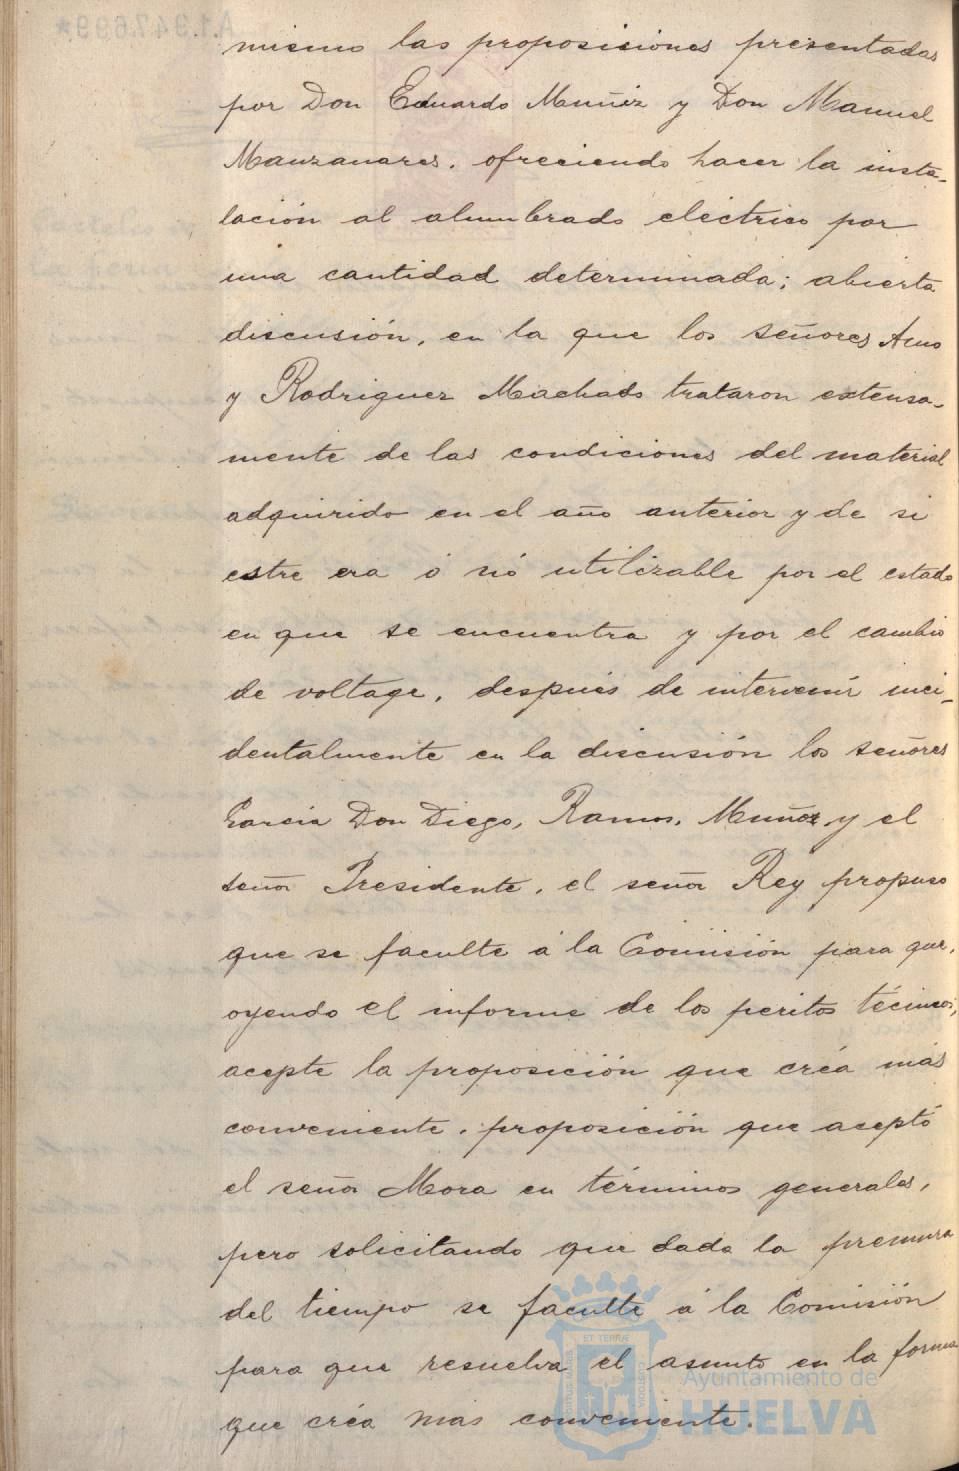 mismo las proposiciones presentadas
por Don Eduardo Muñiz y Don Manuel
Manzanares, ofreciendo hacer la insta-
lación al alumbrado eléctrico por
una cantidad determinada; abierta
discusión, en la que los señores
y Rodriguez Machado trataron extensa-
mente de las condiciones del material
adquirido en el año anterior y de si
estre era ó nó utilizable por el estado
en que se encuentra y por el cambio
de voltage, después de intervenir inci-
dentalmente en la discusión los señores
Garcia Don Diego, Ramos, Muñoz y el
señor Presidente, el señor Rey propuso
que se faculte á la Comisión para que,
oyendo el informe de los peritos técnicos,
acepte la proposición que créa más
conveniente, proposición que aceptó
el señor Mora en términos generales,
pero solicitando que dada la premura
del tiempo se faculte á la Comisión
para que resuelva el asunto en la forma
que créa mas conveniente.
Ayuntamiento de
HUELVA